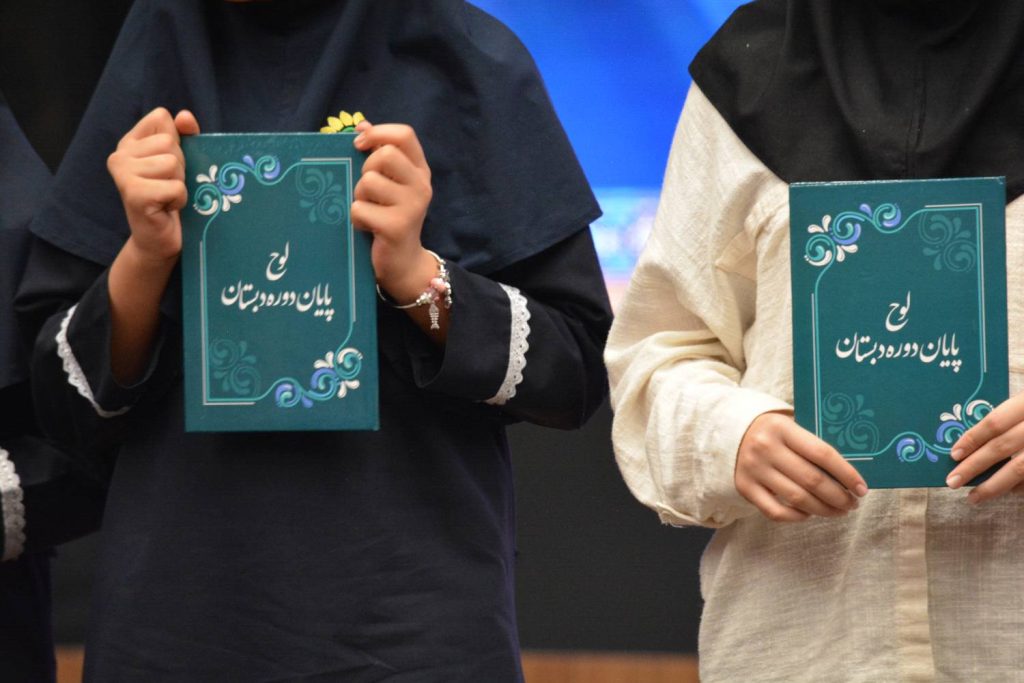 لوح
پایان دوره دبستان
لوح
پایان دوره دبستان